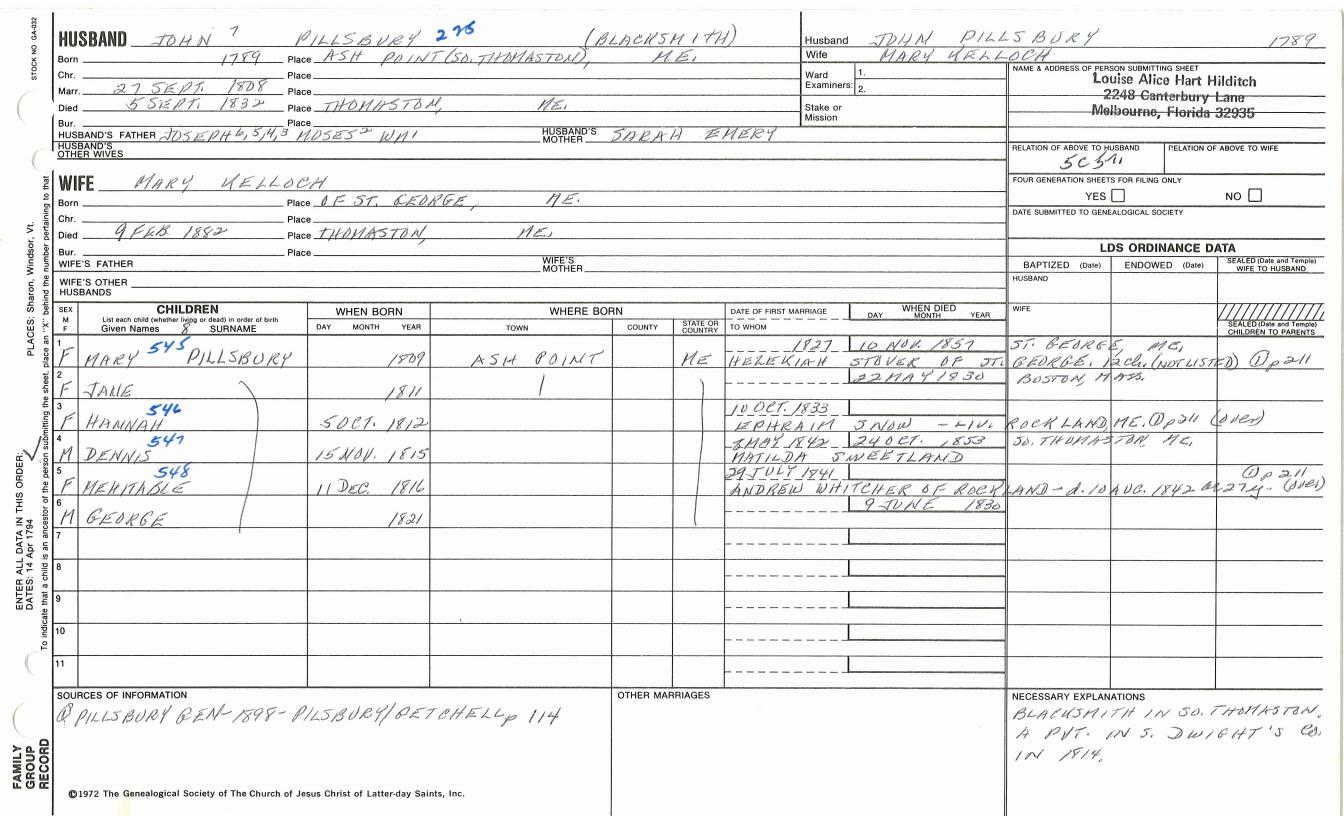 STOCK NO. GA-032
HUSBAND JOHN 7 PILLSBURY 275 (BLACKSMITH)
Born 1789 Place ASH POINT (SO. THOMASTON), ME.
Chr. Place
Marr. 27 SEPT. 1808 Place
Died 5 SEPT. 1832 Place THOMASTON, ME.
Bur. Place
HUSBAND'S FATHER JOSEPH 6, 5, 4, 3 MOSES 2 WM 1 HUSBAND'S MOTHER SARAH EMERY
HUSBAND'S OTHER WIVES
Husband JOHN PILLSBURY 1789
Wife MARY KELLOCH
Ward Examiners: 1.
2.
Stake or Mission
NAME & ADDRESS OF PERSON SUBMITTING SHEET
Louise Alice Hart Hilditch
2248 Canterbury Lane
Melbourne, Florida 32935
RELATION OF ABOVE TO HUSBAND RELATION OF ABOVE TO WIFE
FOUR GENERATION SHEETS FOR FILING ONLY
YES NO
DATE SUBMITTED TO GENEALOGICAL SOCIETY
WIFE MARY KELLOCH
Born Place OF ST. GEORGE, ME.
Chr. Place
Died 9 FEB 1882 Place THOMASTON, ME.
Bur. Place
WIFE'S FATHER WIFE'S MOTHER
WIFE'S OTHER HUSBANDS
LDS ORDINANCE DATA
BAPTIZED (Date) ENDOWED (Date) SEALED (Date and Temple) WIFE TO HUSBAND
HUSBAND
WIFE
SEALED (Date and Temple) CHILDREN TO PARENTS
SEX M F CHILDREN WHEN BORN WHERE BORN DATE OF FIRST MARRIAGE WHEN DIED
List each child (whether living or dead) in order of birth
Given Names 8 SURNAME DAY MONTH YEAR TOWN COUNTY STATE OR COUNTRY TO WHOM DAY MONTH YEAR
1 545 1827 10 NOV. 1857 ST. GEORGE, ME.
F MARY PILLSBURY 1809 ASH POINT ME HEZEKIAH STOVER OF ST. GEORGE. 12 ch. (NOT LISTED) ① p 211
2 22 MAY 1830 BOSTON, MASS.
F JANE 1811
3 546 10 OCT. 1833
F HANNAH 5 OCT. 1812 EPHRAIM SNOW - LIV. ROCKLAND, ME. ① p 211 (over)
4 547 3 MAY 1842 24 OCT. 1853 SO. THOMASTON, ME.
M DENNIS 15 NOV. 1815 MATILDA SWEETLAND
5 548 29 JULY 1841 ① p 211
F MEHITABLE 11 DEC. 1816 ANDREW WHITCHER OF ROCKLAND - d. 10 AUG. 1842 27 y - (over)
6 9 JUNE 1830
M GEORGE 1821
7
8
9
10
11
SOURCES OF INFORMATION
① PILLSBURY GEN - 1898 - PILSBURY/GETCHELL p 114
OTHER MARRIAGES
NECESSARY EXPLANATIONS
BLACKSMITH IN SO. THOMASTON.
A PVT. IN S. DWIGHT'S CO.
IN 1814.
©1972 The Genealogical Society of The Church of Jesus Christ of Latter-day Saints, Inc.
ENTER ALL DATA IN THIS ORDER:
DATES: 14 Apr 1794
PLACES: Sharon, Windsor, Vt.
To indicate that a child is an ancestor of the person submitting the sheet, place an "X" behind the number pertaining to that
FAMILY
GROUP
RECORD